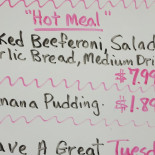 "Hot Meal"
ked Beeferoni, Salad
rlic Bread, Medium Dri
$7.99
nana Pudding. $1.89
ave A Great Tuesd